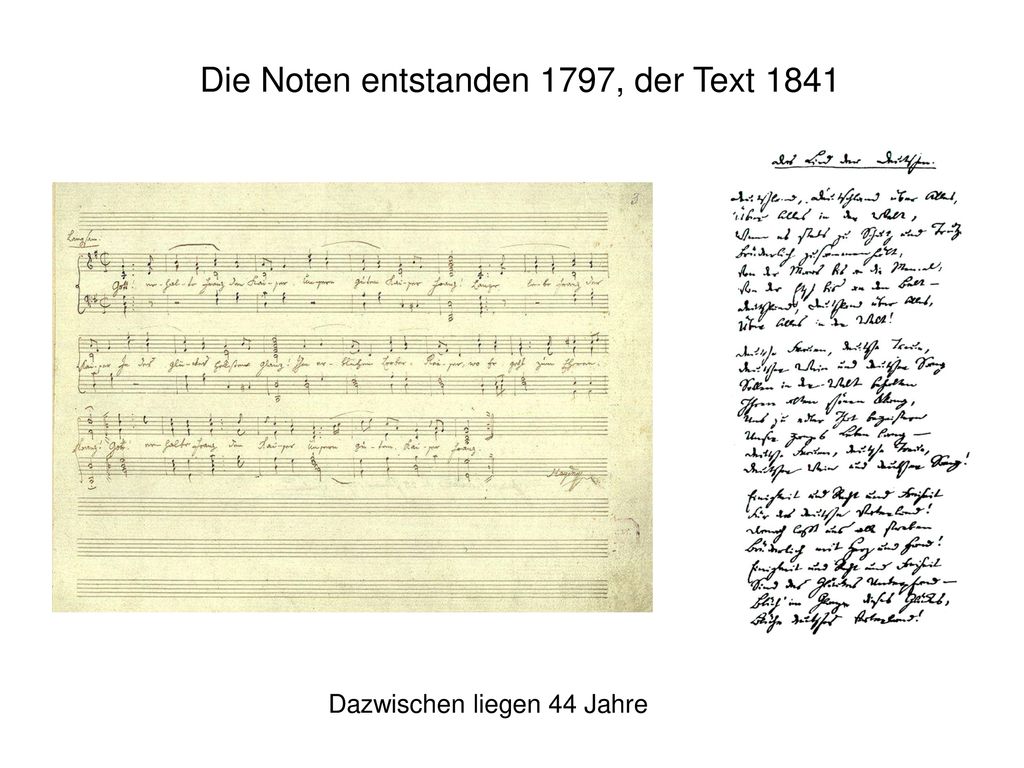 Die Noten entstanden 1797, der Text 1841
3
Langsam.
Gott! er-hal-te Franz den Kai-ser, Unsern guten Kai-ser Franz! Lange le-be Franz der
Kai-ser In des Glü-ckes hellstem Glanz! Ihm er-blühen Lorber-Rei-ser, wo er geht zum Ehren-
kranz! Gott! er-halte Franz den Kai-ser Unsern gu-ten Kai-ser Franz.
Das Lied der Deutschen.
Deutschland, Deutschland über Alles,
Über Alles in der Welt,
Wenn es stets zu Schutz und Trutz
Brüderlich zusammenhält,
Von der Maas bis an die Memel,
Von der Etsch bis an den Belt –
Deutschland, Deutschland über Alles,
Über Alles in der Welt!
Deutsche Frauen, deutsche Treue,
Deutscher Wein und deutscher Sang
Sollen in der Welt behalten
Ihren alten schönen Klang,
Uns zu edler That begeistern
Unser ganzes Leben lang –
Deutsche Frauen, deutsche Treue,
Deutscher Wein und deutscher Sang!
Einigkeit und Recht und Freiheit
Für das deutsche Vaterland!
Danach lasst uns alle streben
Brüderlich mit Herz und Hand!
Einigkeit und Recht und Freiheit
Sind des Glückes Unterpfand –
Blüh' im Glanze dieses Glückes,
Blühe deutsches Vaterland!
Dazwischen liegen 44 Jahre